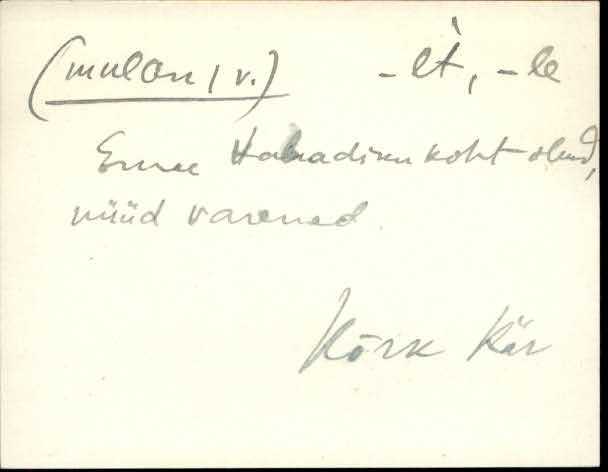 (mulan, v.) -lt, -le
Enne Habadiku koht olnud,
nüüd varened.
Kõrk Kär